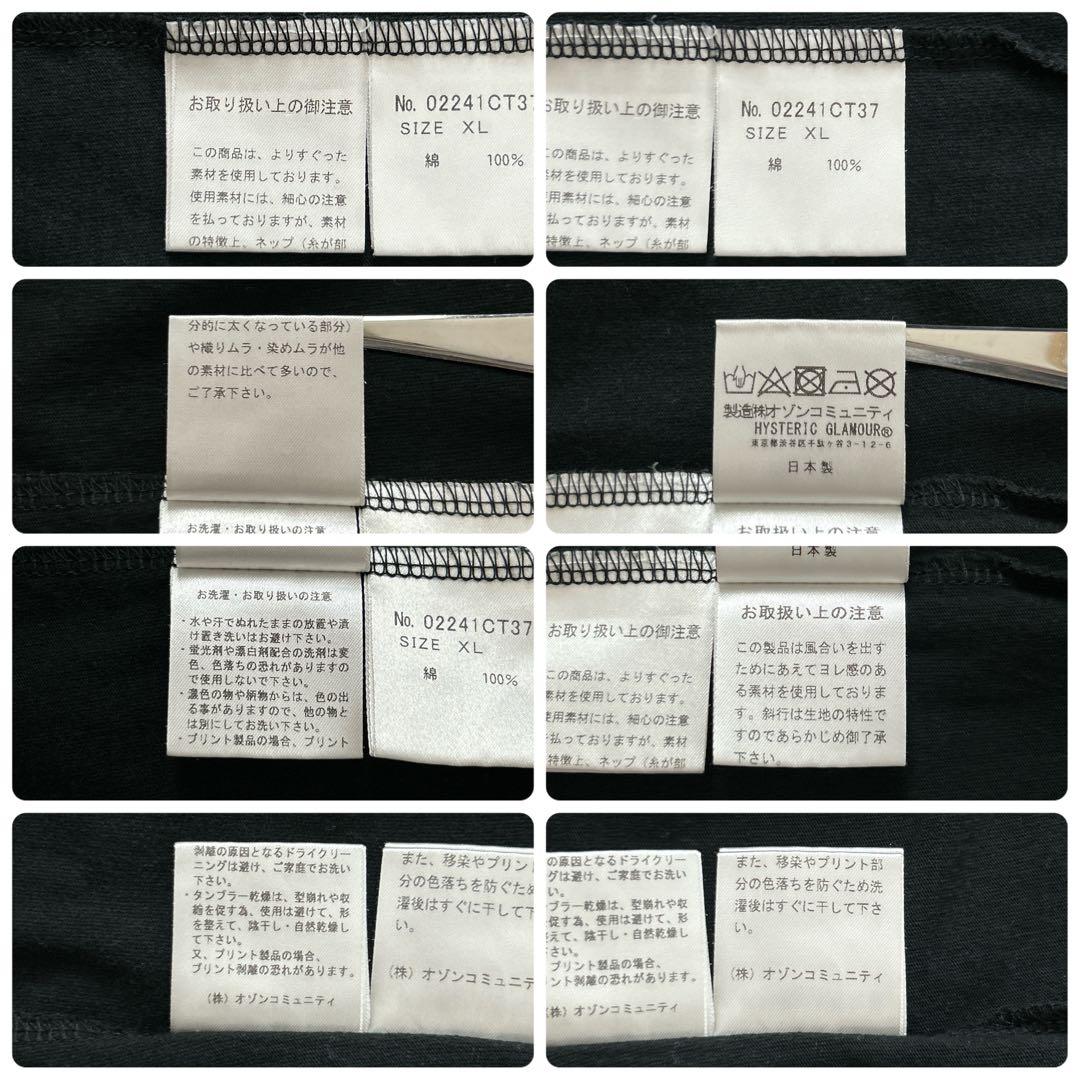 お取り扱い上の御注意
この商品は、よりすぐった
素材を使用しております。
使用素材には、細心の注意
を払っておりますが、素材
の特徴上、ネップ（糸が部
No. 02241CT37
SIZE XL
綿 100%
お取り扱い上の御注意
この商品は、よりすぐった
素材を使用しております。
使用素材には、細心の注意
を払っておりますが、素材
の特徴上、ネップ（糸が部
No. 02241CT37
SIZE XL
綿 100%
分的に太くなっている部分）
や織りムラ・染めムラが他
の素材に比べて多いので、
ご了承下さい。
お洗濯・お取り扱いの注意
製造㈱オゾンコミュニティ
HYSTERIC GLAMOUR®
東京都渋谷区千駄ヶ谷3-12-6
日本製
お取扱い上の注意
お洗濯・お取り扱いの注意
・水や汗でぬれたままの放置や漬
け置き洗いはお避け下さい。
・蛍光剤や漂白剤配合の洗剤は変
色、色落ちの恐れがありますの
で使用しないで下さい。
・濃色の物や柄物からは、色の出
る事がありますので、他の物と
は別にしてお洗い下さい。
・プリント製品の場合、プリント
No. 02241CT37
SIZE XL
綿 100%
お取り扱い上の御注意
この商品は、よりすぐった
素材を使用しております。
使用素材には、細心の注意
を払っておりますが、素材
の特徴上、ネップ（糸が部
日本製
お取扱い上の注意
この製品は風合いを出す
ためにあえてヨレ感のあ
る素材を使用しておりま
す。斜行は生地の特性で
すのであらかじめ御了承
下さい。
剥離の原因となるドライクリー
ニングは避け、ご家庭でお洗い
下さい。
・タンブラー乾燥は、型崩れや収
縮を促す為、使用は避けて、形
を整えて、陰干し・自然乾燥し
て下さい。
又、プリント製品の場合、
プリント剥離の恐れがあります。
（株）オゾンコミュニティ
また、移染やプリント部
分の色落ちを防ぐため
濯後はすぐに干して下
い。
（株）オゾンコミュニテ
の原因となるドライクリー
グは避け、ご家庭でお洗い
い。
ンブラー乾燥は、型崩れや収
を促す為、使用は避けて、形
整えて、陰干し・自然乾燥し
下さい。
プリント製品の場合、
リント剥離の恐れがあります。
（株）オゾンコミュニティ
また、移染やプリント部
分の色落ちを防ぐため洗
濯後はすぐに干して下さ
い。
（株）オゾンコミュニティ